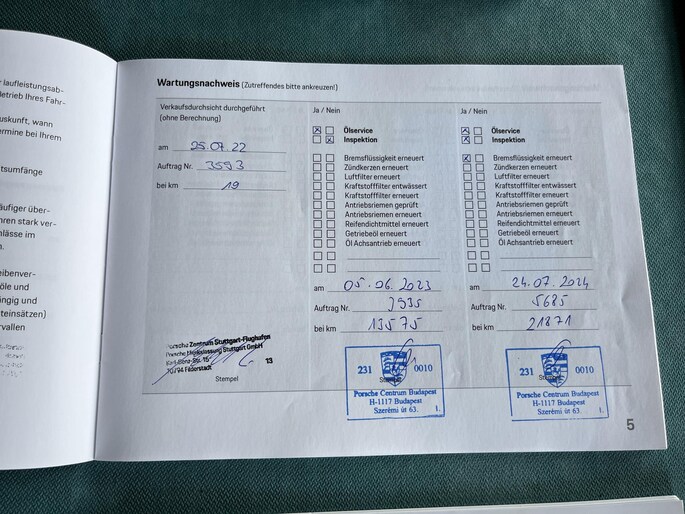 r laufleistungsab-
etrieb Ihres Fahr-
uskunft, wann
ermine bei Ihrem
tsumfänge
äufiger über-
hren stark ver-
lässe im
eibenver-
öle und
ängig und
teinsätzen)
rvallen
Wartungsnachweis (Zutreffendes bitte ankreuzen!)
Verkaufsdurchsicht durchgeführt
(ohne Berechnung)
am 25.07.22
Auftrag Nr. 3593
bei km 19
Porsche Zentrum Stuttgart-Flughafen
Porsche Niederlassung Stuttgart GmbH
Karl-Benz-Str. 15
70794 Filderstadt
13
Stempel
Ja / Nein
Ölservice
Inspektion
Bremsflüssigkeit erneuert
Zündkerzen erneuert
Luftfilter erneuert
Kraftstofffilter entwässert
Kraftstofffilter erneuert
Antriebsriemen geprüft
Antriebsriemen erneuert
Reifendichtmittel erneuert
Getriebeöl erneuert
Öl Achsantrieb erneuert
am 05.06.2023
Auftrag Nr. 3935
bei km 13575
231 0010
Stempel
Porsche Centrum Budapest
H-1117 Budapest
Szerémi út 63. 1.
Ja / Nein
Ölservice
Inspektion
Bremsflüssigkeit erneuert
Zündkerzen erneuert
Luftfilter erneuert
Kraftstofffilter entwässert
Kraftstofffilter erneuert
Antriebsriemen geprüft
Antriebsriemen erneuert
Reifendichtmittel erneuert
Getriebeöl erneuert
Öl Achsantrieb erneuert
am 24.07.2024
Auftrag Nr. 5685
bei km 21871
231 0010
Porsche Centrum Budapest
H-1117 Budapest
Szerémi út 63. 1.
5